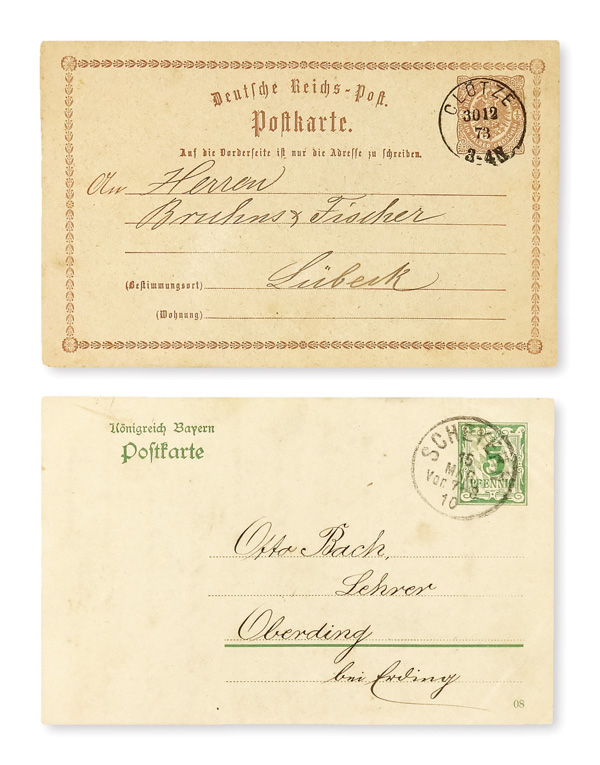 Deutsche Reichs-Post.
Postkarte.
Auf die Vorderseite ist nur die Adresse zu schreiben.
CLÖTZE
30 12
73
3-4N.
An Herren
Bruhns & Fischer
(Bestimmungsort) Lübeck
(Wohnung)
Königreich Bayern
Postkarte
15
Vor. 7
10
5
PFENNIG
Otto Bach,
Lehrer
Oberding
bei Erding
08